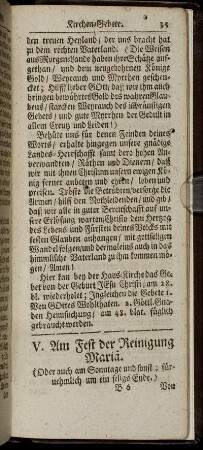 Kirchen-Gebete. 35
den treuen Heyland, der uns bracht hat
zu dem rechten Vaterland. (Die Weisen
aus Morgen-Lande haben ihre Schätze auf-
gethan/ und dem neugebohrnen Könige
Gold/ Weyrauch und Myrrhen geschen-
cket; Hilff lieber GOtt, daß wir ihm auch
bringen bewährtes Gold des wahren Glau-
bens/ starcken Weyrauch des
Gebets/ und gute Myrrhen der Gedult in
allem Creutz und Leiden!)
Behüte uns für denen Feinden deines
Worts, erhalte hingegen unsere gnädige
Landes-Herrschafft samt dero hohen An-
verwandten/ Räthen und Dienern/ daß
wir mit ihnen Christum unsern ewigen Kö-
nig ferner anbeten und ehren/ loben und
preisen. Tröste die Betrübten/ versorge die
Armen/ hilff den Nothleidenden/ und gib/
daß wir alle in guter Bereitschafft auf un-
sere Erlösung warten/ Christo dem Hertzog
des Lebens und Fürsten deines Volcks mit
festen Glauben anhangen/ mit gottseligen
Wandel folgen und dermaleins auch in das
himmlische Vaterland zu ihm kommen
mögen/ Amen!
Hier kan bey der Haus-Kirche das Ge-
bet von der Geburt JEsu Christi/ am 28.
bl. wiederholet; Ingleichen die Gebete 1.
Von GOttes Wohlthaten. 2. Göttl. Gna-
den Heimsuchung/ am 48. blat. füglich
gebraucht werden.
V. Am Fest der Reinigung
Mariä.
(Oder auch am Sonntage und sonst; für-
nehmlich um ein seligs Ende.)
B 6 Von